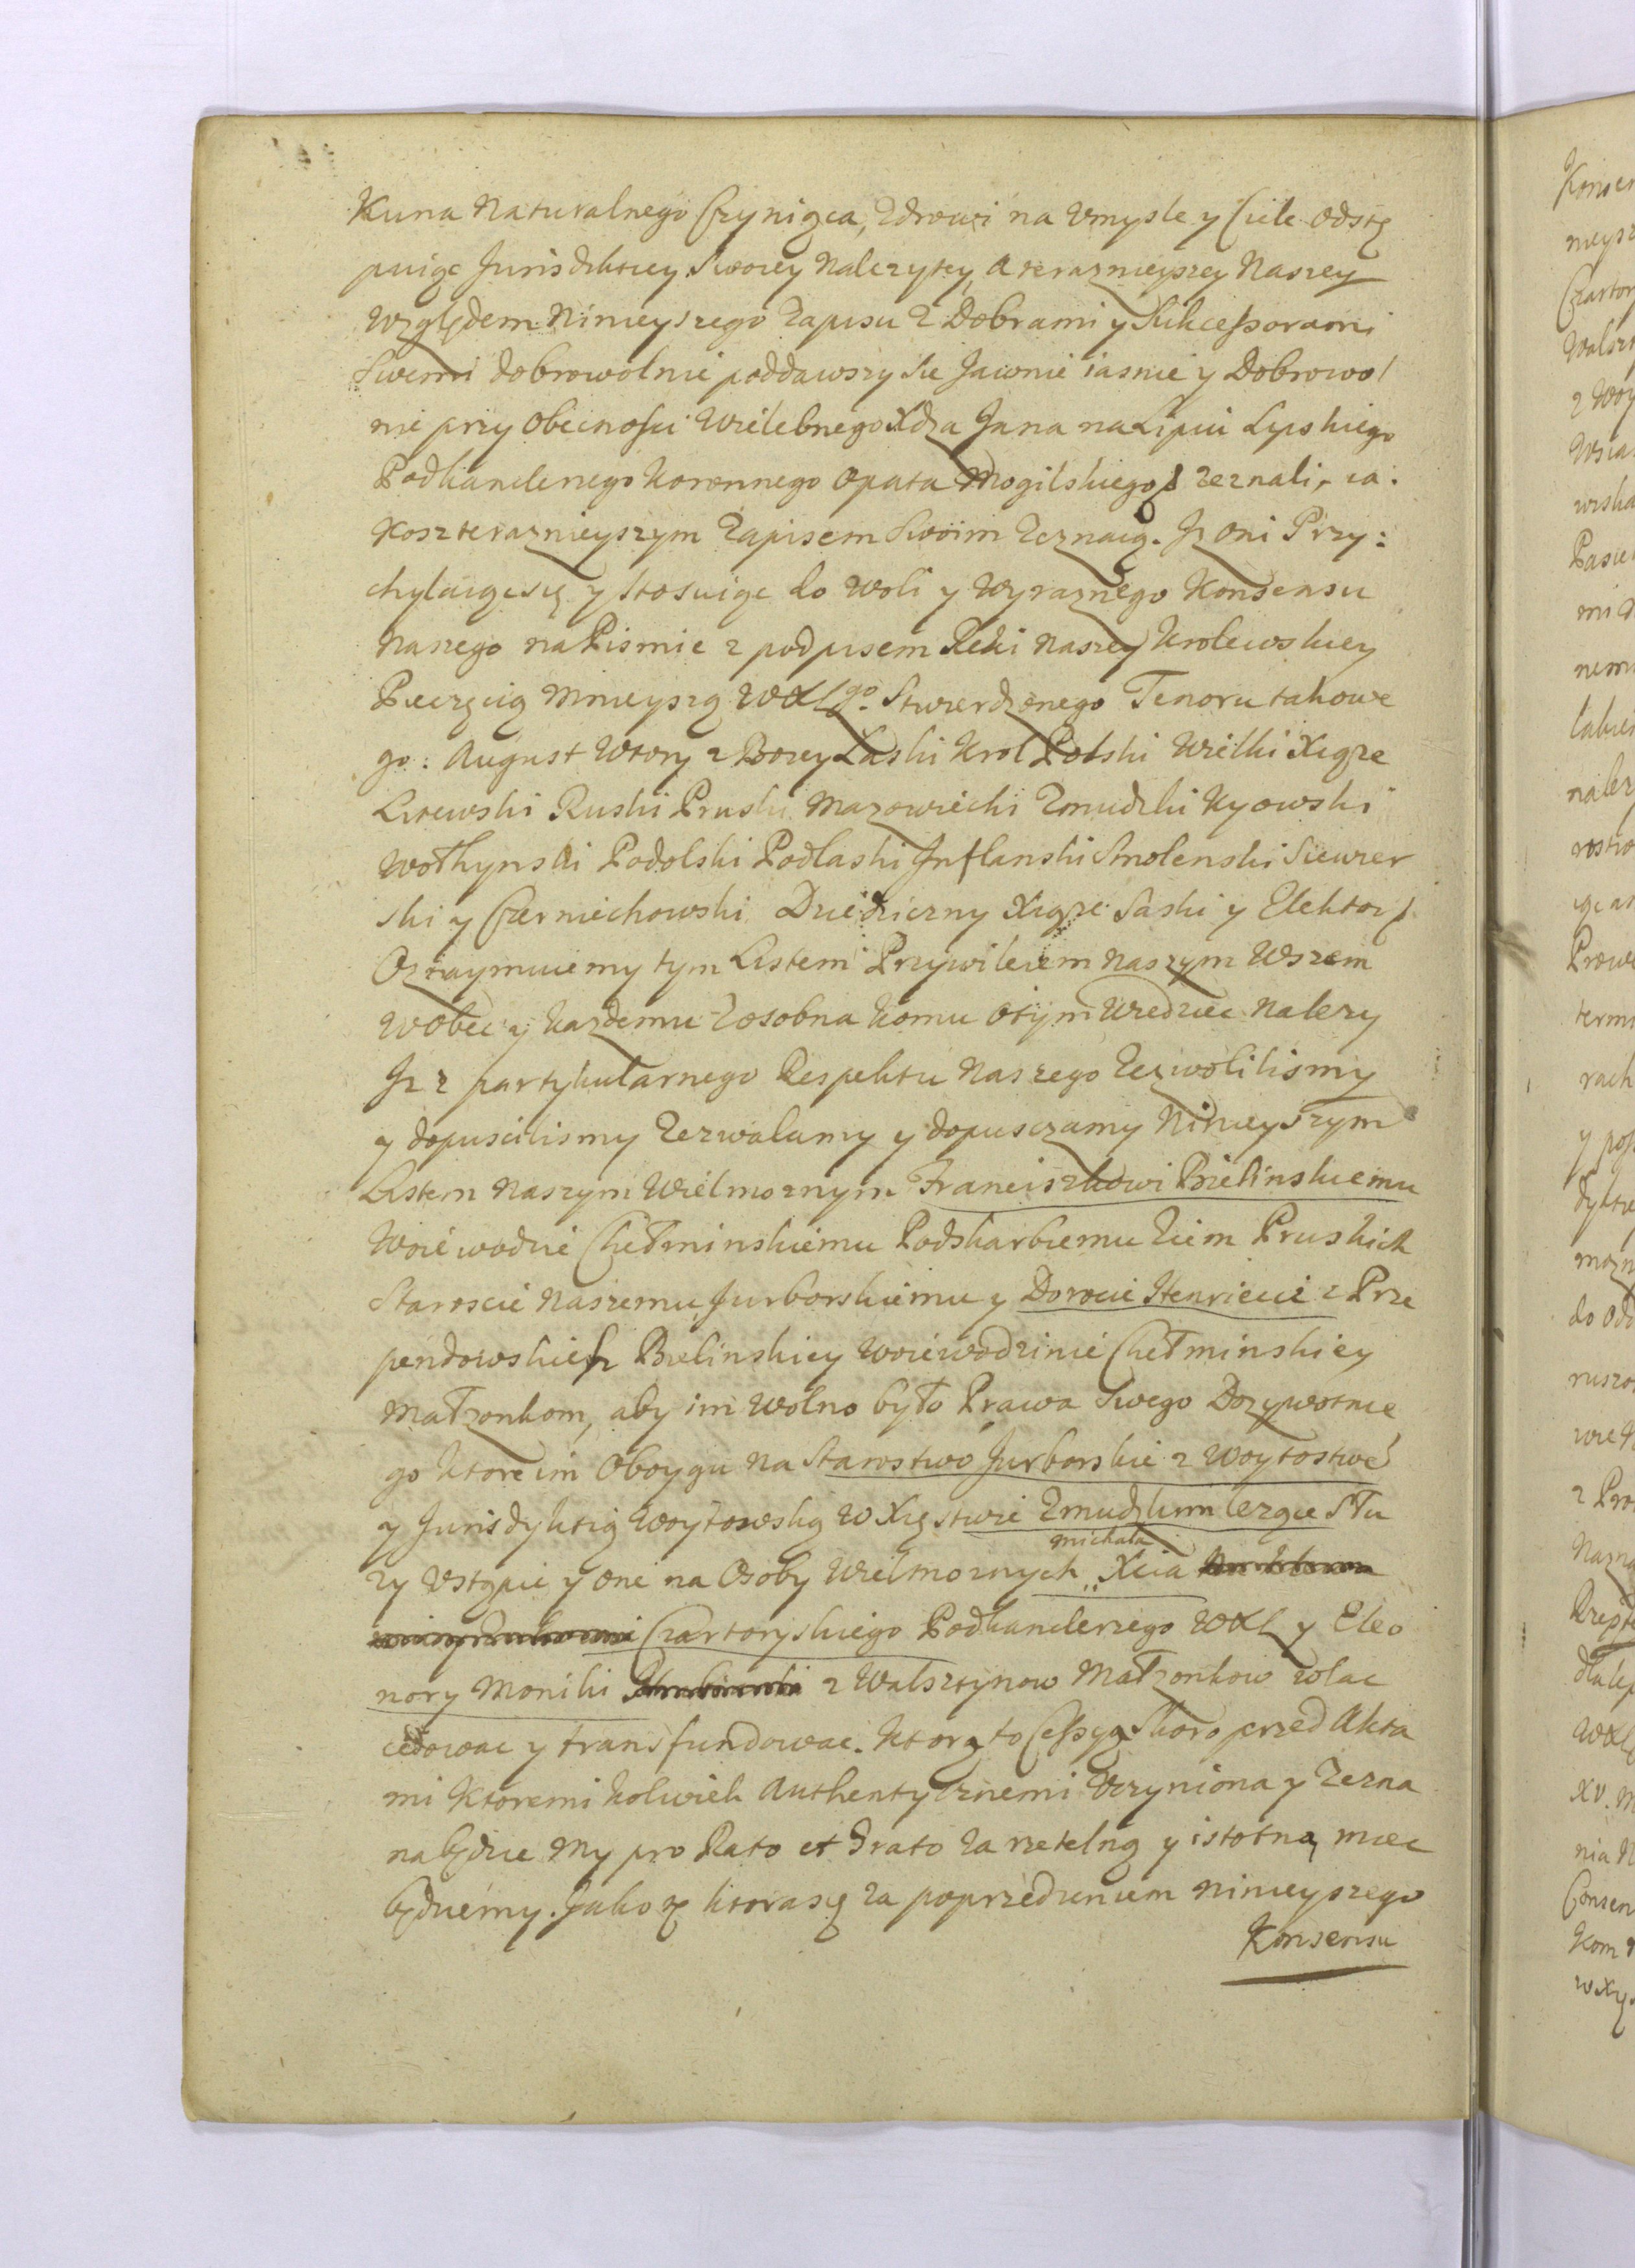 Kuna Naturalnego Czyniąca, Zdrowi na Umysle y Ciele Odstę
puiąc Jurisdikciey Swoiey Nalezytey, A terazniejszey Naszey
Względem Ninieyszego Zapisu z Dobrami y Sukcessorami
Swemi dobrowolnie poddawszy sie Jawnie iasnie y Dobrowol
nie przy Obecnosci Wielebnego Xdza Jana na Lipiu Lipskiego
Podkanclerzego Koronnego Opata Mogilskiego zeznali, ia:
kosz terazniejszym Zapisem Swoim Zeznaią. Jz Oni Przy:
chylaiąc się y stosuiąc do Woli y Wyraznego Konsensu
Naszego na Pismie z podpisem Reki Naszey Krolewskiey
Pieczęcią Mnieyszą WXLgo. Stwierdzonego Tenoru takowe
go: August Wtory z Bozey Laski Krol Polski Wielki Xiąze
Litewski Ruski Pruski Mazowiecki Zmudzki Kyowski
Wołhynski Podolski Podlaski Inflanski Smolenski Siewier
ski y Czerniechowski Dziedziczny Xiąze Saski y Elektor
Oznaymuiemy tym Listem Przywileiem Naszym Wszem
Wobec y kazdemu Zosobna komu Otym Wiedziec Nalezy
Jz z partykularnego Respektu Naszego Zezwolilismy
y dopuscilismy Zezwalamy y dopusczamy Ninieyszym
Listem Naszym Wielmoznym Franciszkowi Bielinskiemu
Woiewodzie Chełminskiemu Podskarbiemu Ziem Pruskich
Staroscie Naszemu Jurborskiemu y Dorocie Henriecie z Prze
pendowskich Bielinskiey Woiewodzinie Chełminskiey
Małzonkom, aby im Wolno było Prawa Swego Dozywotnie
go ktore im Oboygu na Starostwo Jurborskie z Woytostwe
y Jurisdyktią Woytowską W Xięstwie Zmudzkim lezące Słu
zy Ustąpic y one na Osoby Wielmoznych Michała Xcia
Czartoryskiego Podkanclerzego WXL y Eleo
nory Moniki z Walsztynow Małzonkow wlac
cedowac y transfundowac. Ktorą to Cessyą Skoro przed Akta
mi Ktoremi kolwiek Authentycznemi Uczyniona y Zezna
na będzie My pro Rato et Grato Za rzetelną y istotną miec
będziemy. Jakoz ktora się za poprzedzeniem ninieyszego
Konsensu